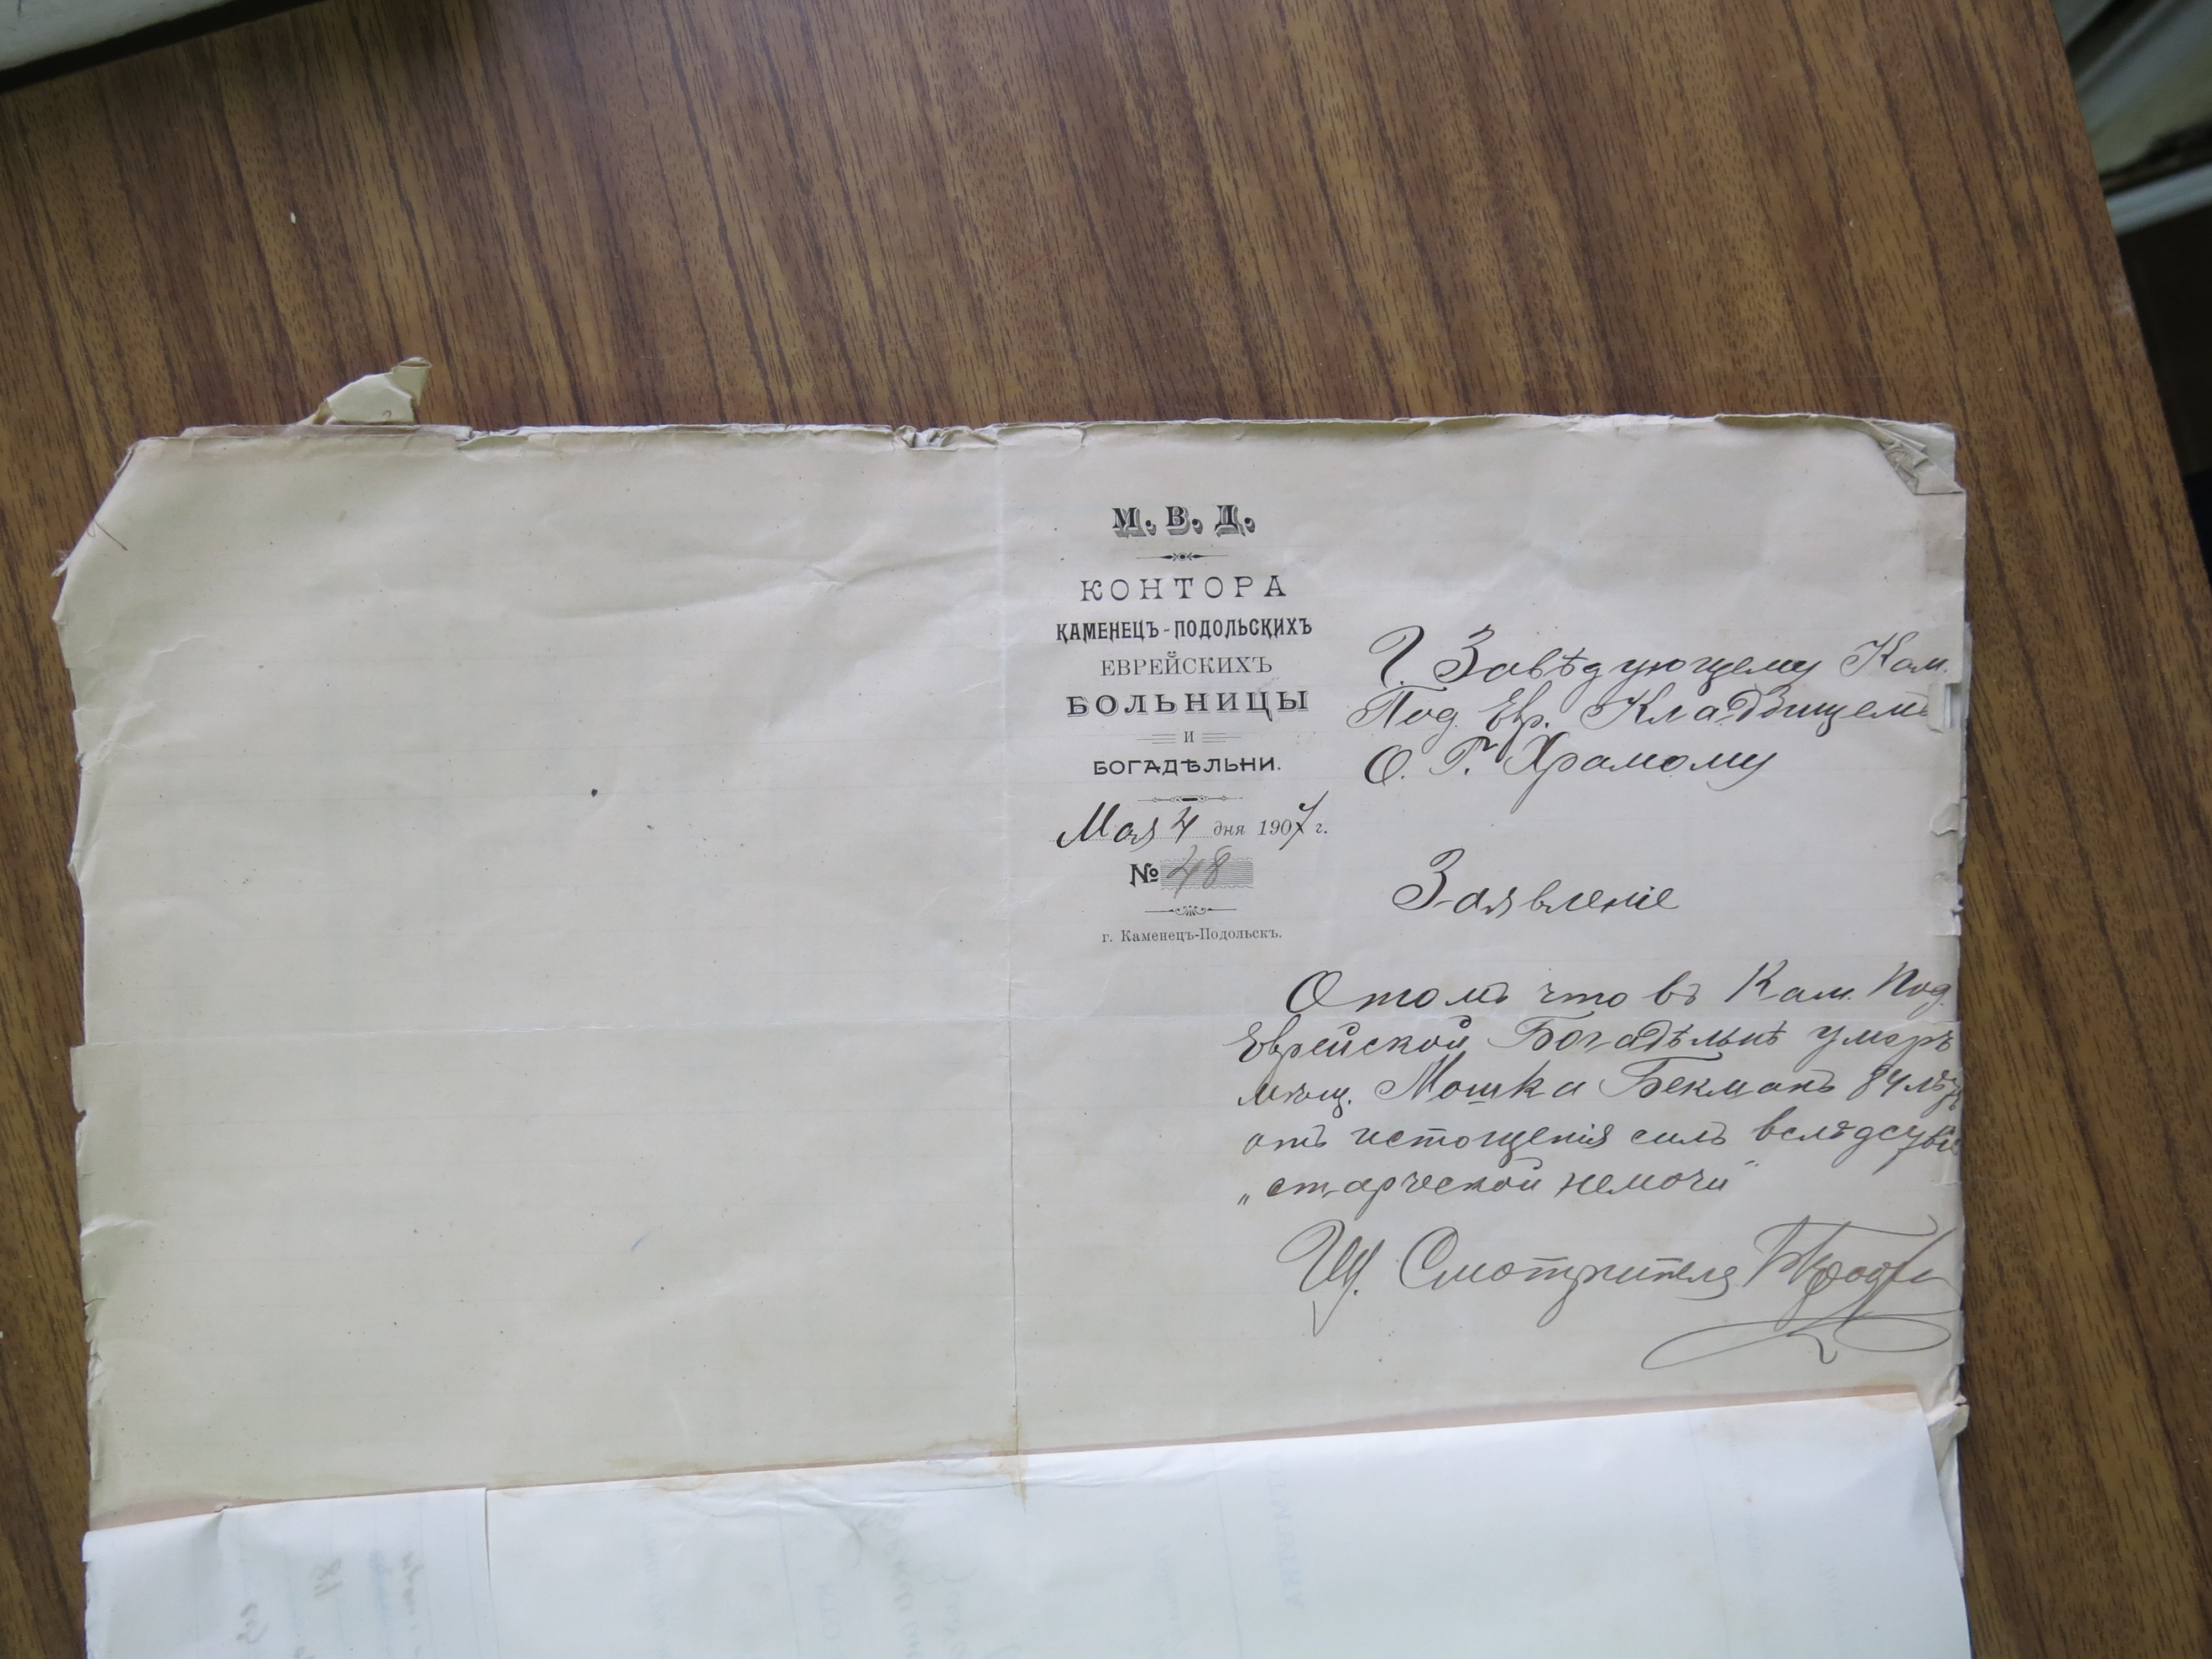 М. В. Д.
КОНТОРА
КАМЕНЕЦЪ-ПОДОЛЬСКИХЪ
ЕВРЕЙСКИХЪ
БОЛЬНИЦЫ
И
БОГАДѢЛЬНИ.
Мая 4 дня 1907 г.
№ 48
г. Каменецъ-Подольскъ.
Г. Завѣдующему Кам.
Под. Евр. Кладбищемъ
О. Г. Храмому
Заявленіе
О томъ что въ Кам. Под.
Еврейской Богадѣльнѣ умеръ
мѣщ. Мошка Бекманъ 84 лѣтъ
отъ истощенія силъ вслѣдствіе
„старческой немочи"
Смотрителя